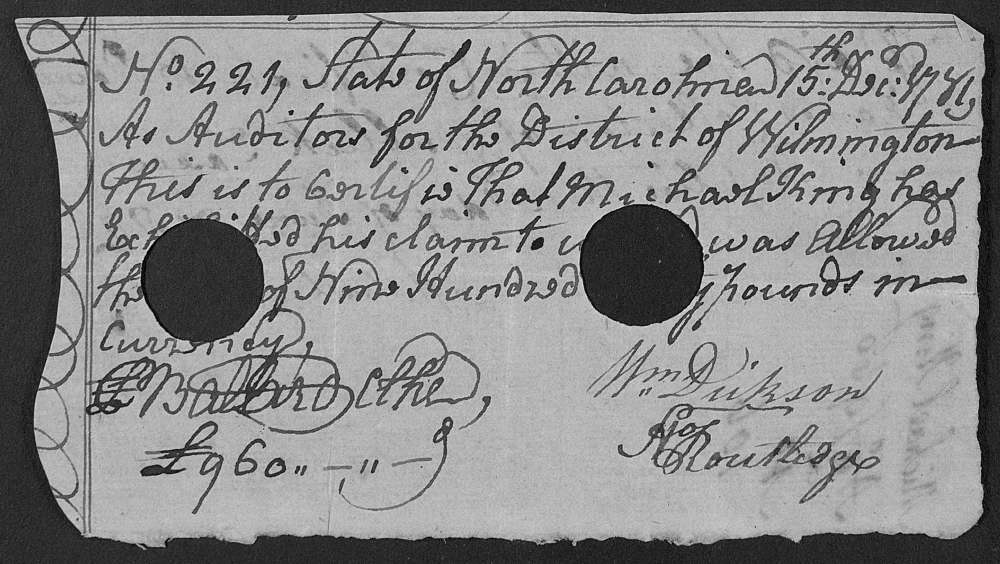 No. 221, State of North Carolina 15th Decr. 1781,
As Auditors for the District of Wilmington
This is to Certifie That Michael King has
Exhibitted his claim to was Allowed
the of Nine Hundred pounds in
Currency,
Ballard Cthe,
Wm Dickson
£960 ,, — ,, —
Routledge